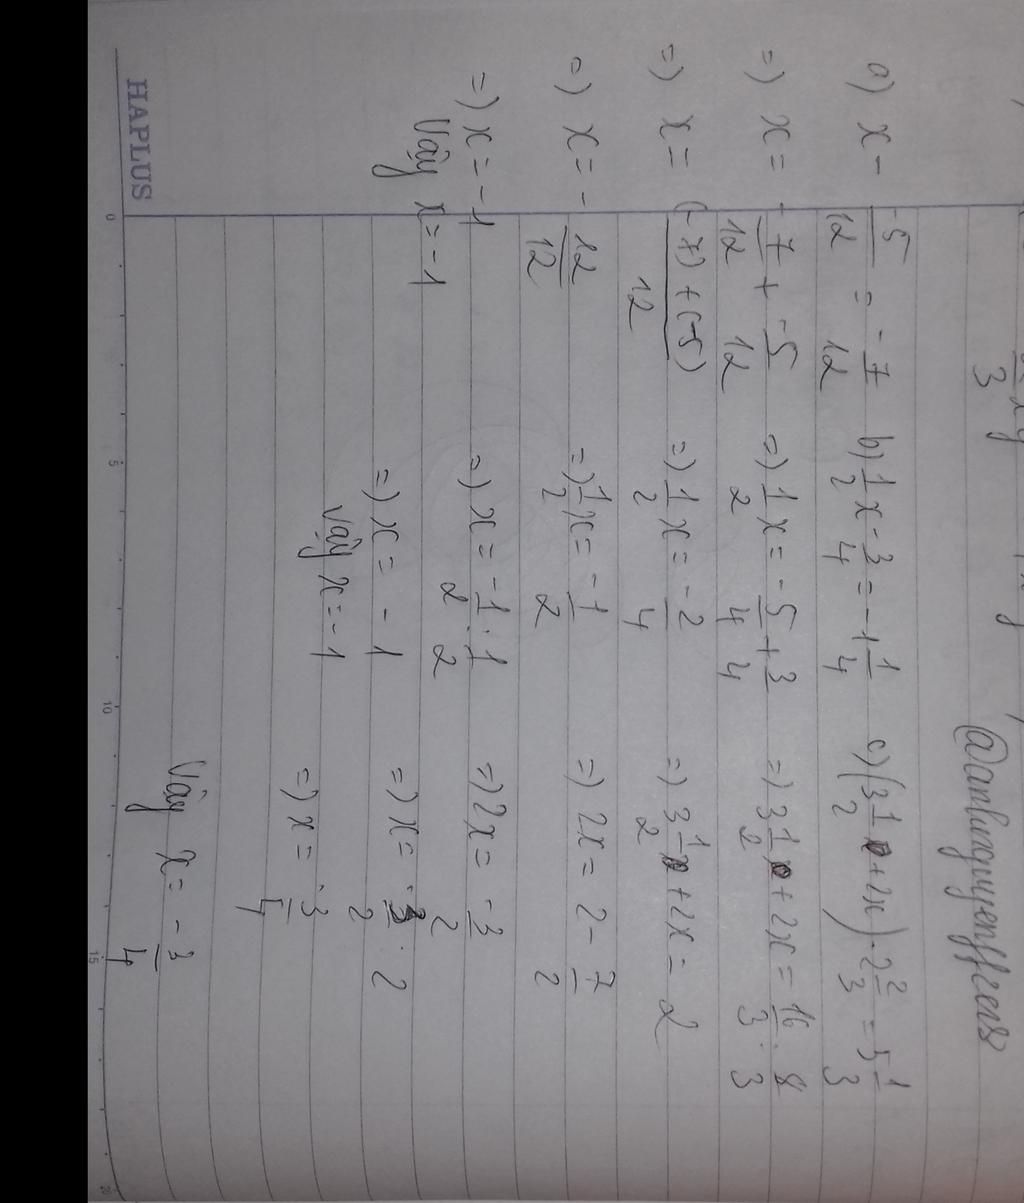 a) x - -5/12 = -7/12
=) x = -7/12 + -5/12
=) x = (-7)+(-5)/12
=) x = -12/12
=) x = -1
Vậy x = -1
b) 1/2 x - 3/4 = -1 1/4
=) 1/2 x = -5/4 + 3/4
=) 1/2 x = -2/4
=) 1/2 x = -1/2
=) x = -1/2 : 1/2
=) x = -1
Vậy x = -1
c) (3 1/2 + 2x) . 2 2/3 = 5 1/3
=) 3 1/2 + 2x = 16/3 : 8/3
=) 3 1/2 + 2x = 2
=) 2x = 2 - 7/2
=) 2x = -3/2
=) x = -3/2 : 2
=) x = -3/4
Vậy x = -3/4
HAPLUS
0 5 10 15 20